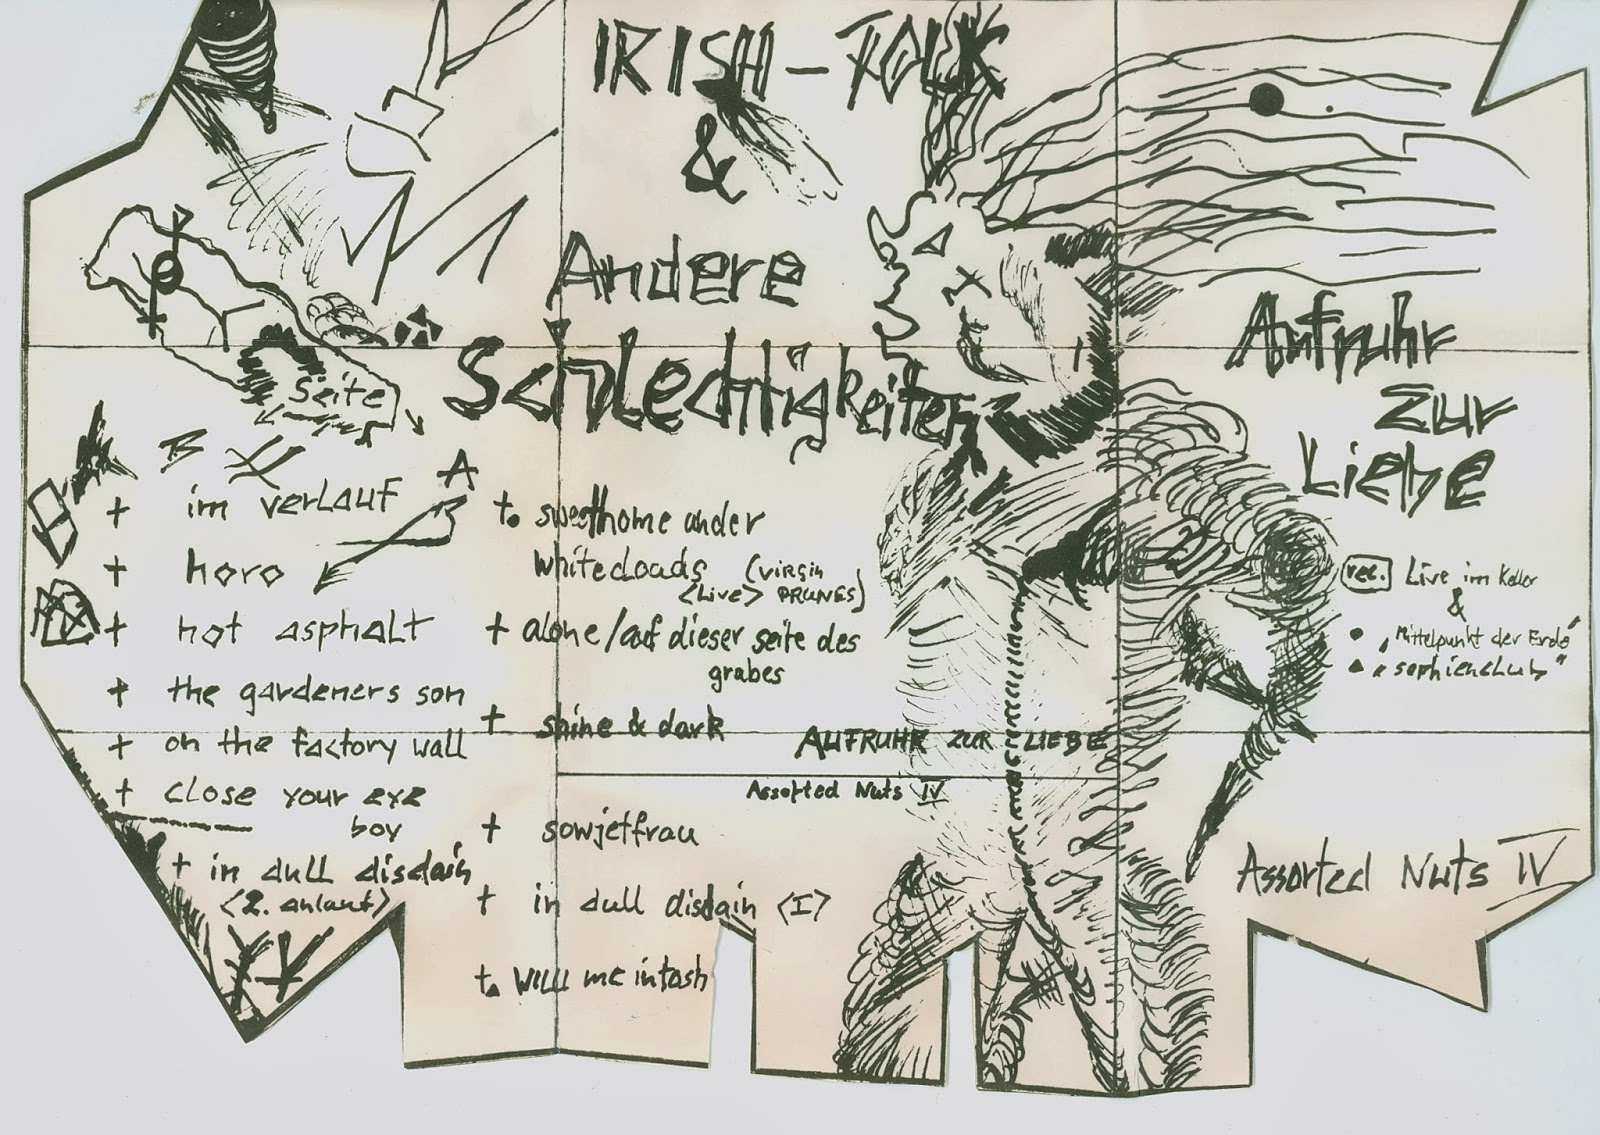 IRISH - FOLK
&
Andere
Schlechtigkeiten
Aufruhr
Zur
Liebe
Seite
A
B
+ im verlauf
+ horo
+ hot asphalt
+ the gardeners son
+ on the factory wall
+ close your eye
boy
+ in dull disdain
<2. anlauf>
+. sweethome under
whiteclouds (VIRGIN
<Live> PRUNES)
+ alone/auf dieser seite des
grabes
+ shine & dark
AUFRUHR ZUR LIEBE
Assorted Nuts IV
+ sowjetfrau
+ in dull disdain <I>
+. WILLI mc intosh
rec. Live im Keller
&
• "Mittelpunkt der Erde"
• "sophienclub"
Assorted Nuts IV